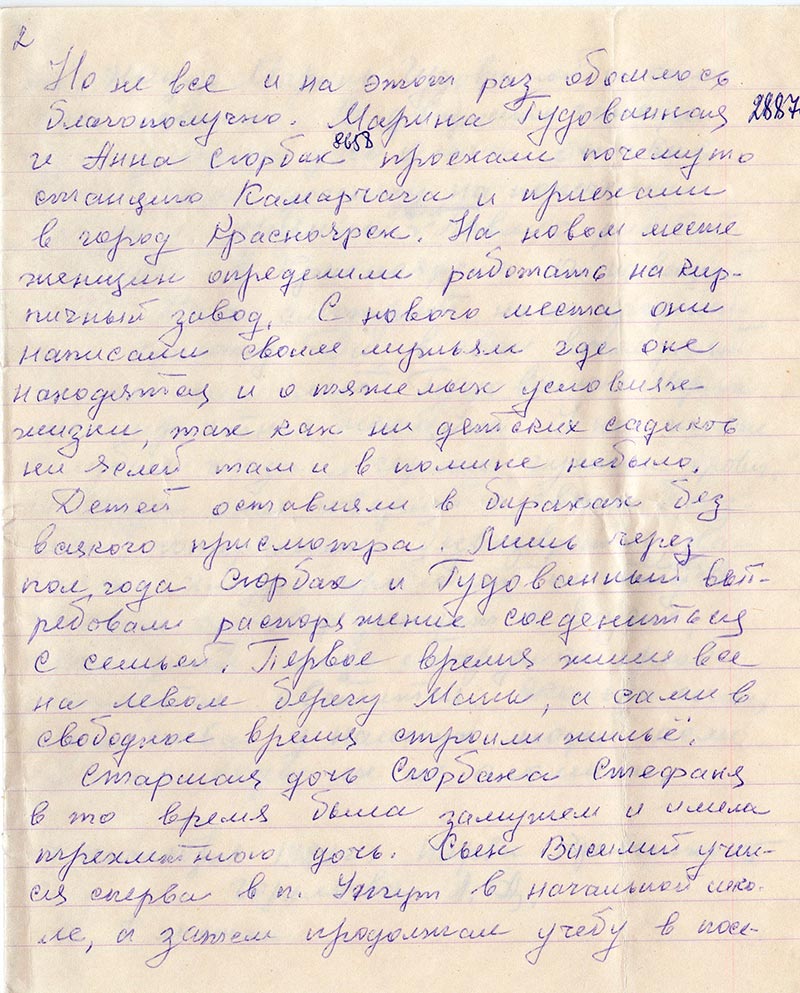 2
Но не все и на этот раз обошлось
благополучно. Марина Гудованная 2887
и Анна Скорбак 8658 проехали почемуто
станцию Камарчага и приехали
в город Красноярск. На новом месте
женщин определили работать на кир-
пичный завод. С нового места они
написали своим мужьям где оне
находятся и о тяжелых условиях
жизни, так как ни детских садиков
ни яслей там и в помине небыло.
Детей оставляли в бараках без
всякого присмотра. Лишь через
пол года Скорбак и Гудованный вытре-
ребовали распоряжение соеденитьця
с семьей. Первое время жили все
на левом берегу Маны, а сами в
свободное время строили жильё.
Старшая дочь Скорбака Стефаня
в то время была замужем и имела
трехлетнюю дочь. Сын Василий учил-
ся сперва в п. Унгут в начальной шко-
ле, а затем продолжал учебу в посе-